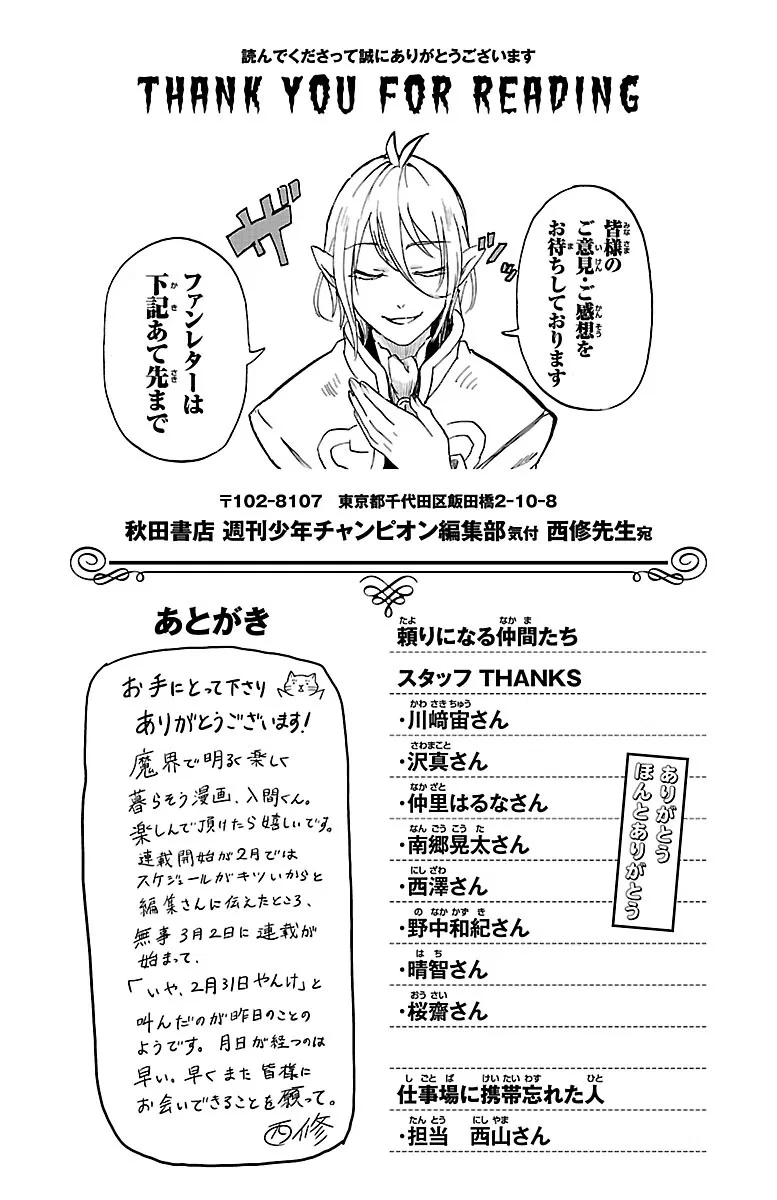 読んでくださって誠にありがとうございます
THANK YOU FOR READING
皆様の
ご意見・ご感想を
お待ちしております
ズ
ザッ
ファンレターは
下記あて先まで
〒102-8107 東京都千代田区飯田橋2-10-8
秋田書店 週刊少年チャンピオン編集部気付 西修先生宛
あとがき
お手にとって下さり
ありがとうございます!
魔界で明るく楽しく
暮らそう漫画、入間くん。
楽しんで頂けたら嬉しいです。
連載開始が2月では
スケジュールがキツいからと
編集さんに伝えたところ、
無事3月2日に連載が
始まって、
「いや、2月31日やんけ」と
叫んだのが昨日のことの
ようです。月日が経つのは
早い。早くまた皆様に
お会いできることを願って。
西修
頼りになる仲間たち
スタッフ THANKS
・川﨑宙さん
・沢真さん
・仲里はるなさん
・南郷晃太さん
・西澤さん
・野中和紀さん
・晴智さん
・桜齋さん
ありがとう
ほんとありがとう
仕事場に携帯忘れた人
・担当 西山さん